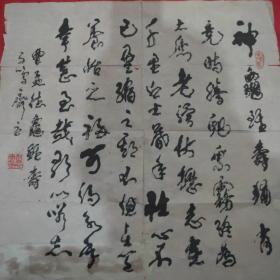 神龜雖壽猶有
竟時騰蛇乘霧終為
土灰老驥伏櫪志在
千里烈士暮年壯心不
已盈縮之期不但在天
養怡之福可得永年
幸甚至哉歌以詠志
曹孟德龜雖壽